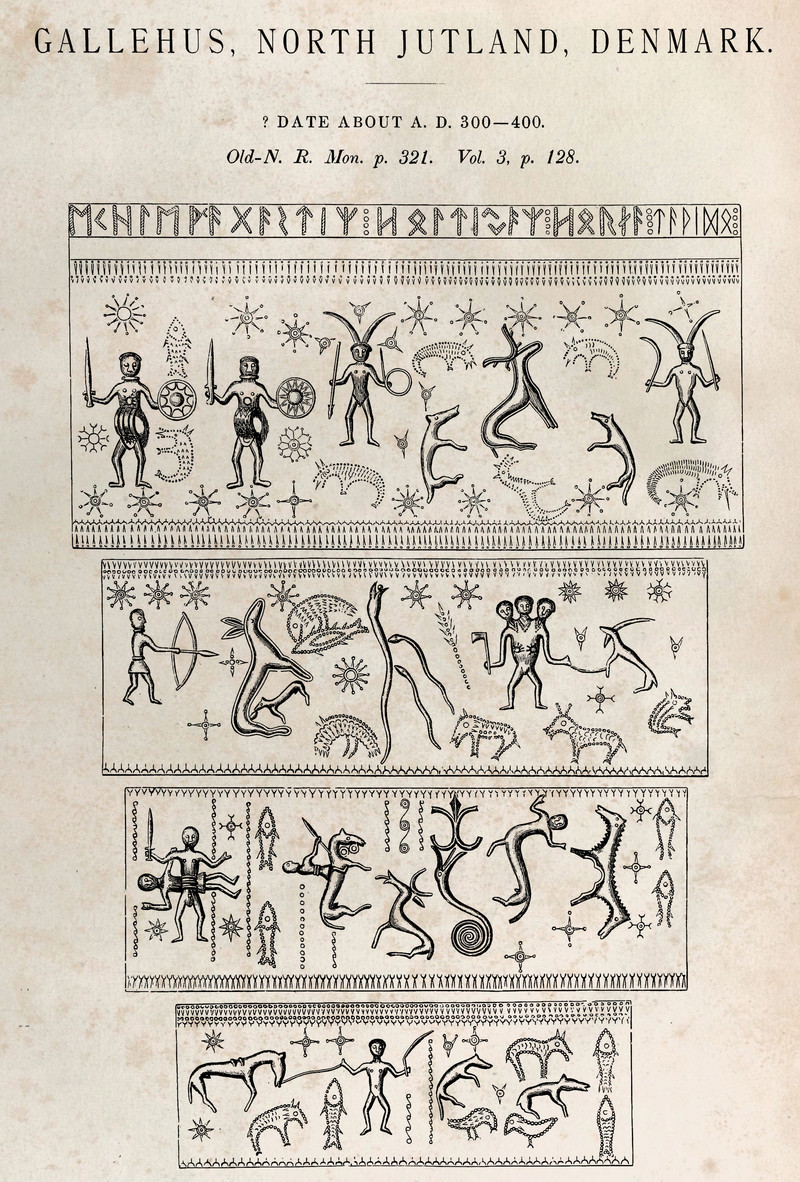 GALLEHUS, NORTH JUTLAND, DENMARK.
? DATE ABOUT A. D. 300—400.
Old-N. R. Mon. p. 321. Vol. 3, p. 128.
ᛖᚲᚺᛚᛖᚹᚨᚷᚨᛊᛏᛁᛉ⁝ᚺᛟᛚᛏᛁᛃᚨᛉ⁝ᚺᛟᚱᚾᚨ⁝ᛏᚨᚹᛁᛞᛟ⁝